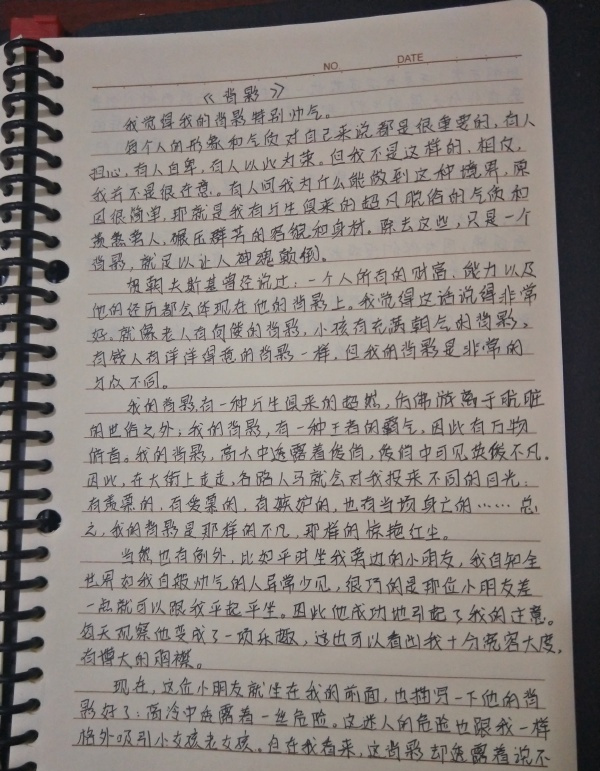 NO.
DATE
《背影》
我觉得我的背影特别帅气。
每个人的形象和气质对自己来说都是很重要的,有人
担心,有人自卑,有人以此为荣。但我不是这样的,相反,
我并不是很在意。有人问我为什么能做到这种境界,原
因很简单,那就是我有与生俱来的超凡脱俗的气质和
羡煞旁人,碾压群芳的容貌和身材。除去这些,只是一个
背影,就足以让人神魂颠倒。
朝夫斯基曾经说过:一个人所有的财富、能力以及
他的经历都会体现在他的背影上。我觉得这话说得非常
好,就像老人有佝偻的背影,小孩有充满朝气的背影,
有钱人有洋洋得意的背影一样,但我的背影是非常的
与众不同。
我的背影有一种与生俱来的超然,仿佛游离于肮脏
的世俗之外;我的背影,有一种王者的霸气,因此有万物
俯首。我的背影,高大中透露着俊俏,俊俏中可见英俊不凡。
因此,在大街上走走,各路人马就会对我投来不同的目光:
有羡慕的,有爱慕的,有嫉妒的,也有当场身亡的……总
之,我的背影是那样的不凡,那样的惊艳红尘。
当然也有例外,比如平时坐我旁边的小朋友,我自知全
世界如我这般帅气的人异常少见,很巧的是那位小朋友差
一点就可以跟我平起平坐。因此他成功地引起了我的注意。
每天观察他变成了一项乐趣,这也可以看出我十分宽容大度,
有博大的胸襟。
现在,这位小朋友就坐在我的前面,也描写一下他的背
影好了:高冷中透露着一丝危险。这迷人的危险也跟我一样
格外吸引小女孩老女孩。但在我看来,这背影却透露着说不